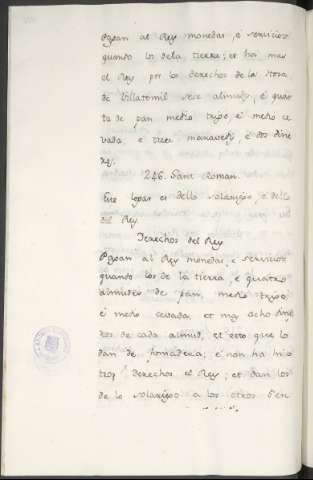 Pagan al Rey monedas, é servicios
quando los dela tierra; et ha mas
el Rey por los derechos de la
de Villatomil seis almudes, é quar
ta de pan, medio trigo, é medio ce
vada, é tres maravedis, é dos dine
246. Sant Roman.
Este logar es dello solariego, é dello
del Rey
Derechos del Rey
Pagan al Rey monedas, e servicios
quando los de la tierra, e quatro
almudes de pan, medio trigo,
é medio cevada, et mas ocho dine
ros de cada almud, et esto que lo
dan de fumadera; é non ha mio
tros derechos el Rey; et dan los
de lo solariego a los otros Sen